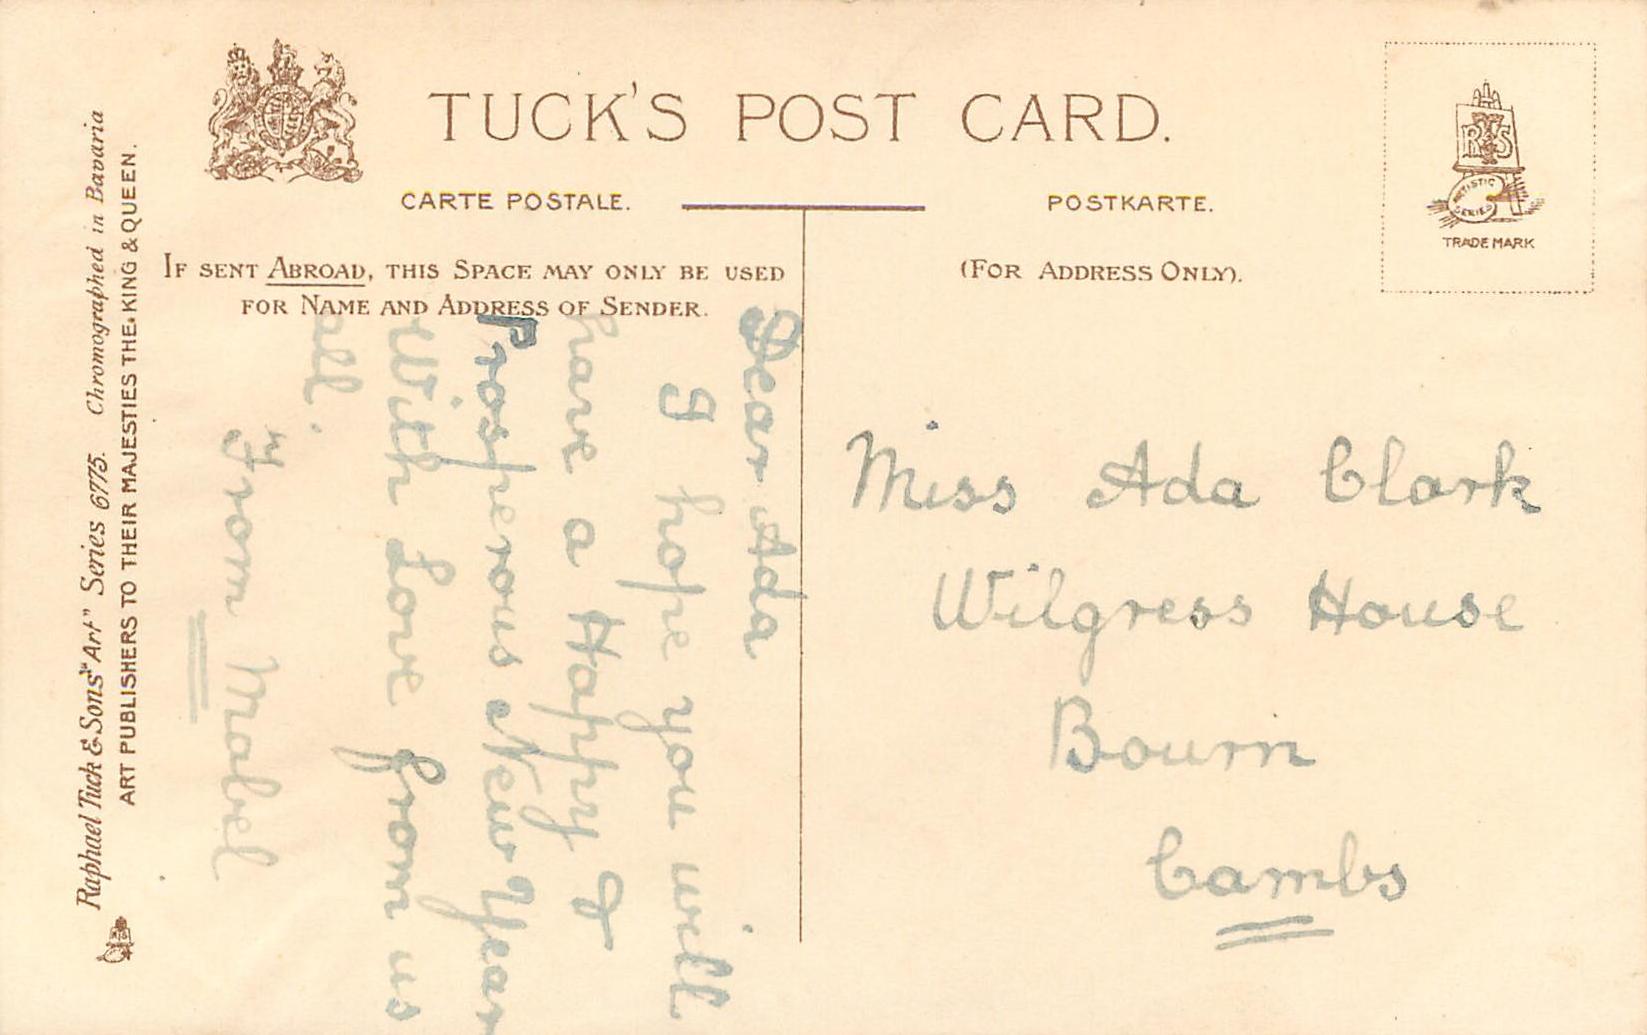 TUCK'S POST CARD.
CARTE POSTALE.
POSTKARTE.
IF SENT ABROAD, THIS SPACE MAY ONLY BE USED
FOR NAME AND ADDRESS OF SENDER.
(FOR ADDRESS ONLY).
R T S
ARTISTIC
SERIES
TRADE MARK
Raphael Tuck & Sons' "Art" Series 6775. Chromographed in Bavaria
ART PUBLISHERS TO THEIR MAJESTIES THE KING & QUEEN.
Dear Ada
I hope you will
have a Happy &
Prosperous New Year
With Love from us
all.
From Mabel
Miss Ada Clark
Wilgress House
Bourn
Cambs